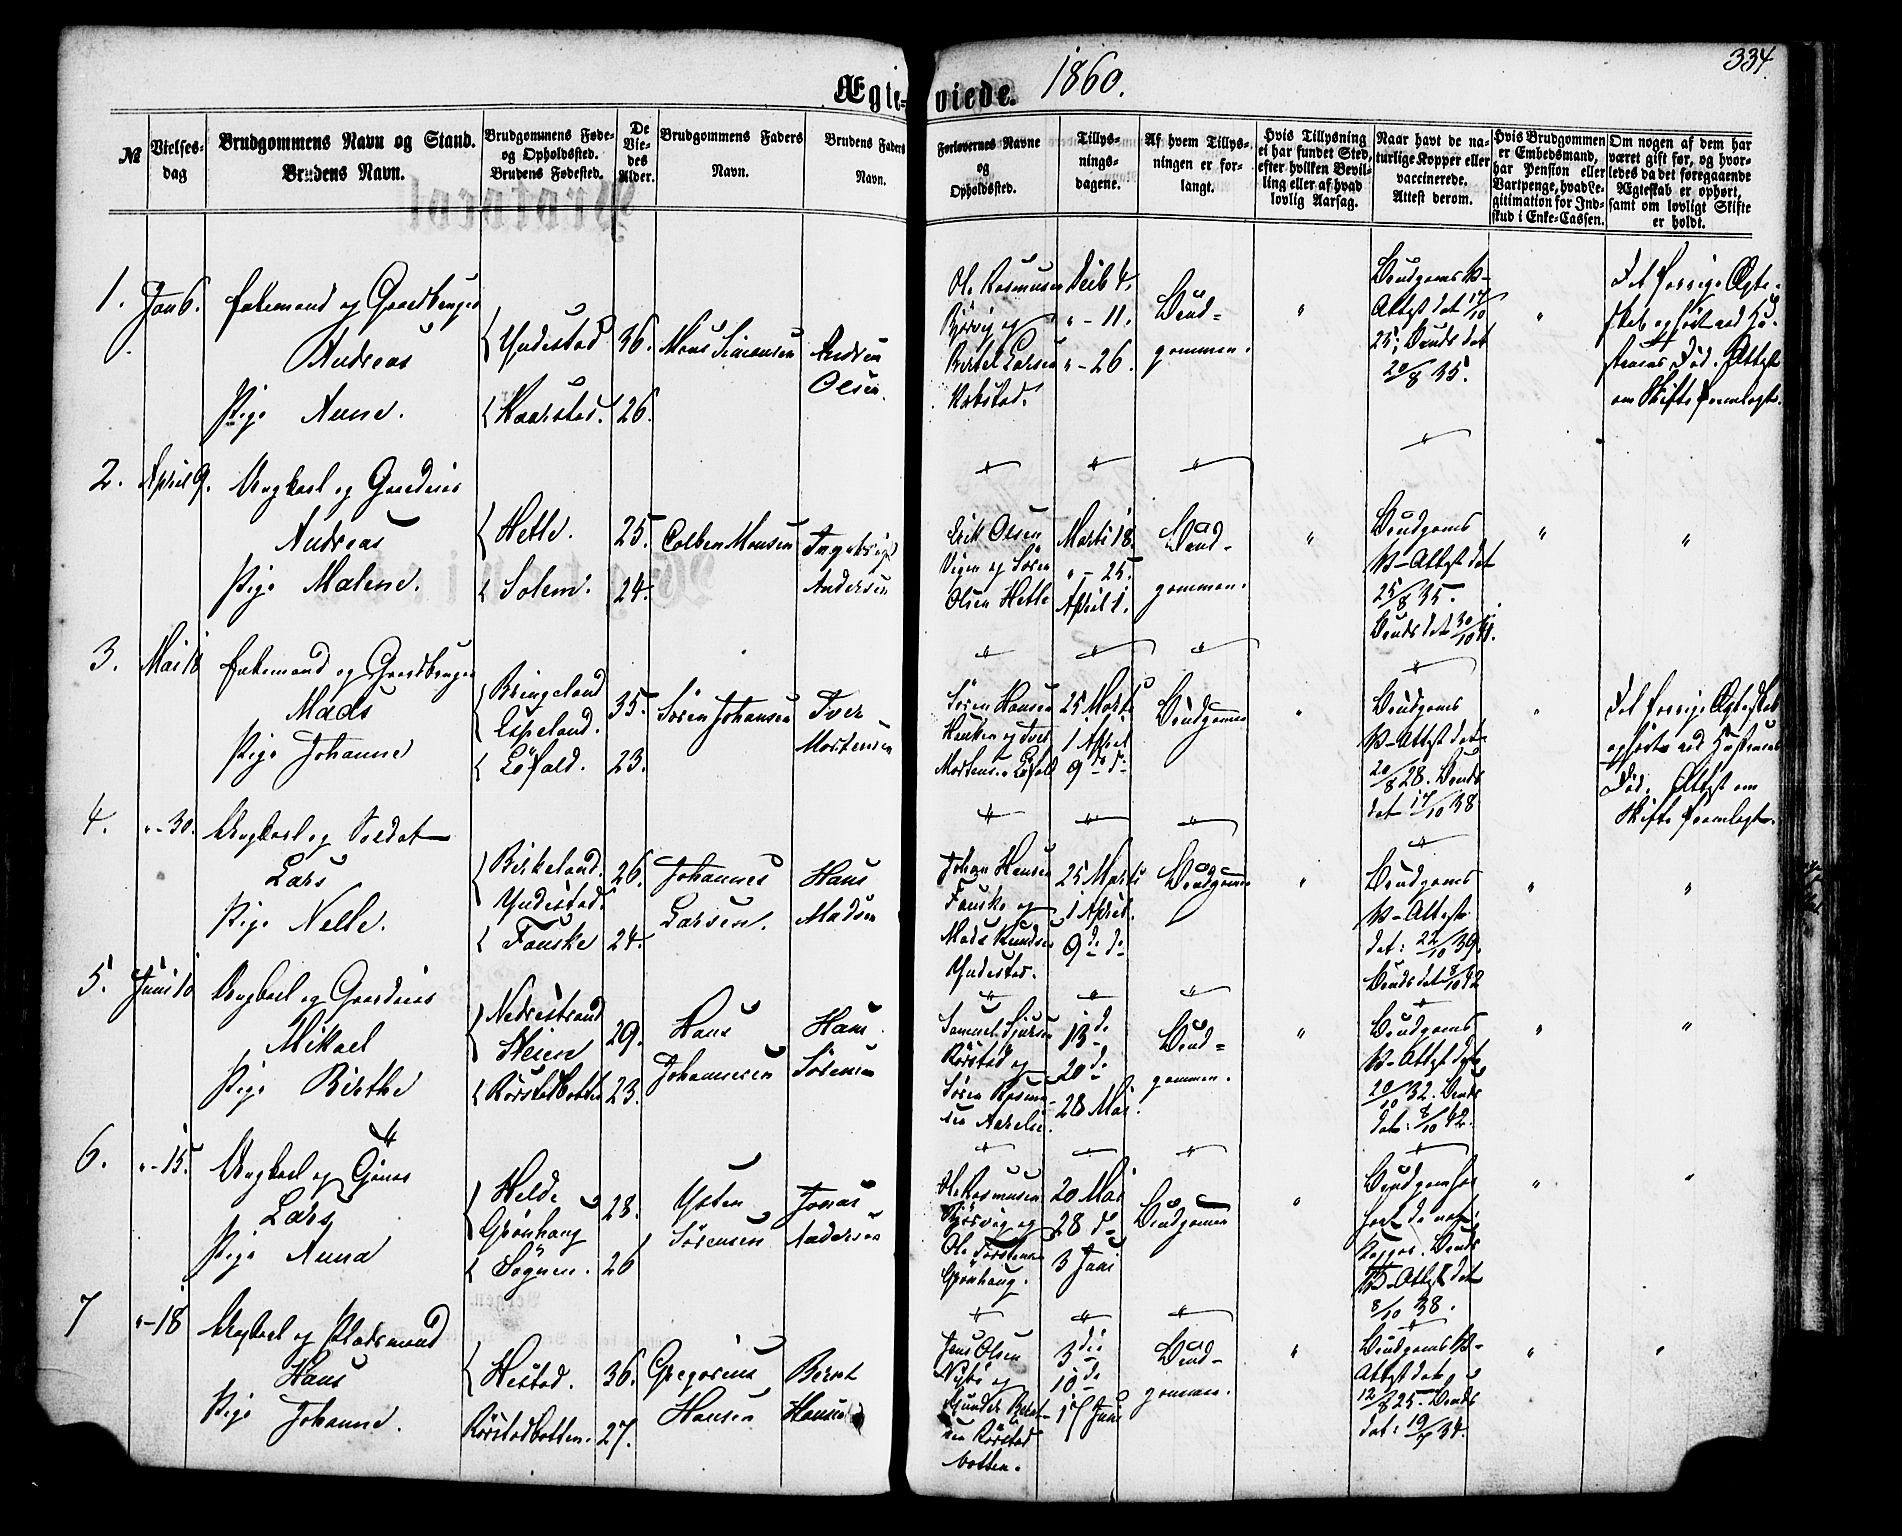 334.
Ægte-viede. 1860.
№
Vielses-
dag
Brudgommens Navn og Stand.
Brudens Navn.
Brudgommens Føde-
og Opholdssted.
Brudens Fødested.
De
Vie-
des
Alder.
Brudgommens Faders
Navn.
Brudens Faders
Navn.
Forlovernes Navne
og
Opholdssted.
Tillys-
nings-
dagene.
Af hvem Tillys-
ningen er for-
langt.
Hvis Tillysning
ei har fundet Sted,
efter hvilken Bevil-
ling eller af hvad
lovlig Aarsag.
Naar havt de na-
turlige Kopper eller
vaccinerede.
Attest derom.
Hvis Brudgommen
er Embedsmand,
har Pension eller
Vartpenge, hvad Le-
gitimation for Ind-
skud i Enke-Cassen.
Om nogen af dem har
været gift før, og hvor-
ledes da det foregaaende
Ægteskab er ophørt,
samt om lovligt Skifte
er holdt.
1. Jan 6. Enkemand og Gaardbruger
Andreas
Pige Anne.
Yndestad 36.
Kaarstad. 26.
Mons Simonsen
Andreas
Olsen.
Ole Rasmusen
Bjørvig og
Bertel Larsen
Decb 4.
" - 11.
" - 26.
Brud-
gommen.
"
Brudgoms V-
Attest dat 17/10
25; Bruds dat
20/8 35.
"
Det forrige Ægte-
skab ophørt ved Hu-
struens Død. Attest
om Skifte fremlagt.
2. April 9. Ungkarl og Gaardeier
Andreas
Pige Malene.
Hetle. 25.
Solem. 24.
Colben Monsen
Andersen
Erik Olsen
Vigen og Søren
Olsen Hetle
Marts 18.
" - 25.
April 1.
Brud-
gommen.
"
Brudgoms
V-Attest dat
25/8 35.
Bruds dat 30/10 41.
"
"
3. Mai 18 Enkemand og Gaardbruger
Mads
Pige Johanne
Bringeland
Espeland. 35.
Løfald. 23.
Søren Johansen
Iver
Mortensen
Søren Hansen
Mortensen Løfald
25 Marts
1 April
9 de do
Brudgommen
"
Brudgoms
V-Attest dat
20/8 28. Bruds
dat 17/10 38
"
Det forrige Ægteskab
ophørt ved Hustruens
Død. Attest om
Skifte fremlagt.
4. " - 30. Ungkarl og Soldat
Lars
Pige Nelle.
Birkeland.
Yndestad. 26.
Fauske 24.
Johannes
Larsen.
Hans
Madsen
Johan Hansen
Fauske og
Mads Knudsen
Yndestad.
25 Marts
1 April.
9 de do
Brudgommen
"
Brudgoms
V-Attest
dat: 22/10 39.
Bruds dat 8/10 42
"
"
5. Juni 10 Ungkarl og Gaardeier
Mikael
Pige Birthe
Nedrestrand
Steien 29.
Rørstadbotten 23.
Hans
Johannesen
Hans
Sørensen
Samuel Sjursen
Rørstad og
Søren Rasmu-
sen
13 do
20 do
28 Mai.
Brud-
gommen.
"
Brudgoms
V-Attest dat
20/10 32. Bruds
dat. 8/10 42.
"
"
6. " - 15. Ungkarl og
Lars
Pige Anna
Helde
Grønhaug 28.
Søgnen. 26
Ysten
Sørensen
Jonas
Andersen
Ole Rasmusen
Bjørvig og
Ole Torstensen
Grønhaug.
20 Mai
28 do
3 Juni
Brudgommen
"
Brudgom har
havt de nat:
Kopper. Bruds
V-Attest dat
8/10 38.
"
"
7 " - 18 Ungkarl og Pladsmand
Hans
Pige Johanne.
Hestad. 36.
Rørstadbotten. 27.
Gregorius
Hansen
Bernt
Hansen
Jens Olsen
og
Bernt-
sen Rørstad
botten.
3 die
10 de
17 Juni
Brud-
gommen.
"
Brudgoms V-
Attest dat:
12/8 25. Bruds
dat: 19/7 34.
"
"